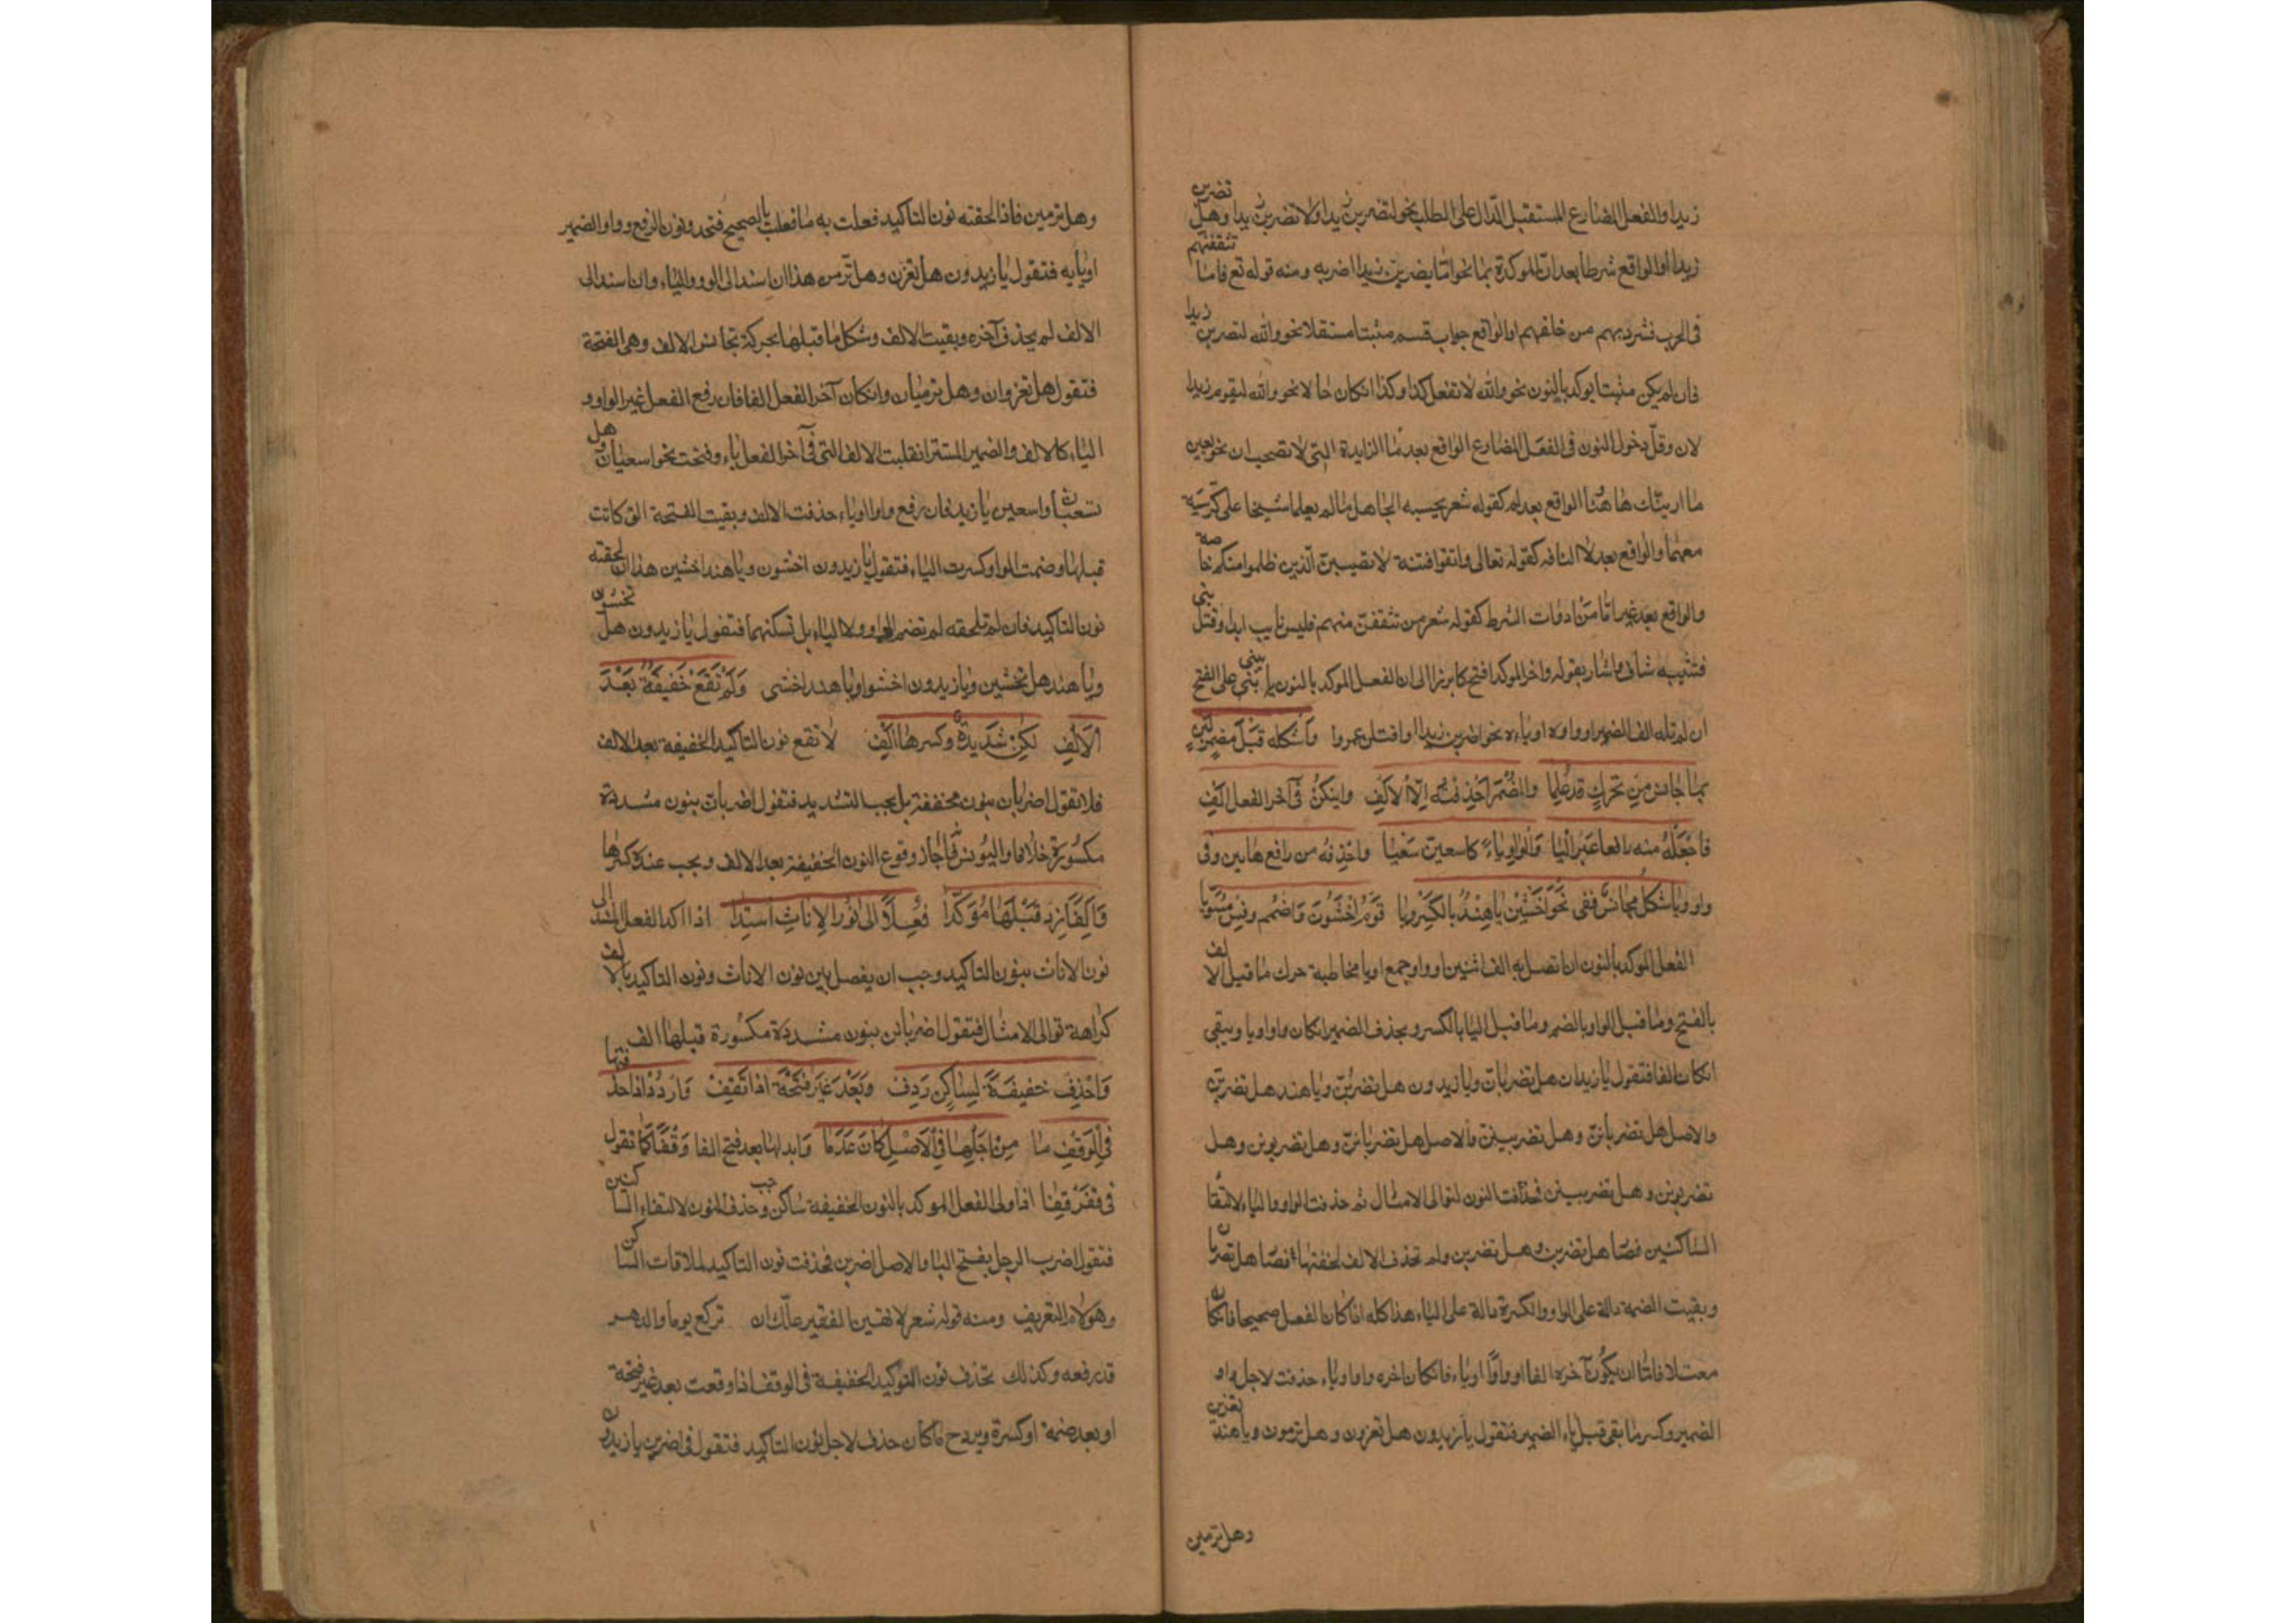 زيدا والفعل المضارع المستقبل الدّال على الطلب نحو لتضربن زيدا ولا تضربن زيدا وهل تضربن
زيدا او الواقع شرطا بعد ان الموكدة بما نحو امّا يضربن زيدا اضربه ومنه قوله تع فاما تثقفنهم
فى الحرب فشرد بهم من خلفهم او الواقع جواب قسم مثبتا مستقلا نحو والله لتضربن زيدا
فان لم يكن مثبتا يوكد بالنون نحو والله لا تفعل كذا وكذا انكان حالا نحو والله ليقوم زيدا
لان وقلّ دخول النون فى الفعل المضارع الواقع بعد ما الزايدة التى لا تصحب ان نحو بعين
ما ارينّك هاهنا الواقع بعد لم كقوله شعر يحسبه الجاهل ما لم يعلما شيخا على كرسيه
معمما والواقع بعد لا النافه كقوله تعالى واتقوا فتنة لا تصيبن الّذين ظلموا منكم خاصه
والواقع بعد غير امّا من ادوات الشرط كقوله شعر من تثقفن منهم فليس بايب ابدا وقتل بنى
قتيبه شافى واشار بقوله واخر الموكد افتح كابرزا الى ان الفعل الموكد بالنون يبنى على الفتح
ان لم تله الف الضمير او واوه او ياءه نحو اضربن زيدا او اقتلن عمروا وَاَشكله قَبْلَ مضمرٍ لَينٍ
بما جانس مِن تَحَرّكٍ قدْ عُلِما والمُضْمَرَ احْذِفَنَّه اِلّا الاَلِفِ واِن يكنْ فى آخر الفعل اَلِفٍ
فاجْعَلْهُ منه رافعا غيرَ اليا وَالواوِ ياءً كاسعينّ سَعْيا واحْذِفهُ من رافع هاتين وفى
واو ويا شكلٌ مجانسٌ قفى نَحوَ اخْشَيِنْ يا هِنْدُ بالكَسْرِ ويا قَوْمُ اخْشَوُنْ وَاضْمُم وقِس مُسَوّيا
الفعل الموكد بالنون ان اتصل به الف اثنين او واو جمع او يا مخاطبة حرك ما قبل الالف
بالفتح وما قبل الواو بالضم وما قبل اليا بالكسر ويحذف الضمير انكان واوا ويا ويبقى
انكان الفا فتقول يا زيدان هل تضربانّ ويا زيدون هل تضربُنّ ويا هند هل تضربِنّ
والاصل هل تضرباننّ وهل تضربيننّ والاصل هل تضرباننّ وهل تضربونن وهل
تضربونن وهل تضربينن فحذفت النون لتوالى الامثال ثم حذفت الواو والياء لالتقا
الساكنين فصا هل تضربن وهل تضربن ولم تحذف الالف لخفتها فصا هل تضربان
وبقيت الضمة دالة على الواو والكسرة دالة على الياء هذا كله اذا كان الفعل صحيحا فانكان
معتلا فامّا ان يكون آخره الفا او واوًا او ياء فانكان اخره واوا وياء حذفت لاجل واو
الضمير وكسر ما بقى قبل ياء الضمير فتقول يا زيدون هل تغزون وهل ترمون ويا هند تغزين
وهل ترمين
وهل ترمين فاذا لحقته نون التاكيد فعلت به ما فعلت بالصحيح فتحذ ونون الرفع وواو الضمير
او يايه فتقول يا زيدون هل تغزن وهل ترمن هذا ان اسند الى الوو والياء وان اسند الى
الالف لم يحذف آخره وبقيت الالف وشكل ما قبلها بحركة تجانس الالف وهى الفتحة
فتقول هل تغزوان وهل ترميان وانكان آخر الفعل الفا فان رفع الفعل غير الواو و
الياء كالالف والضمير المستتر انقلبت الالف التى فى آخر الفعل ياء وفتحت نحو اسعيان وهل
تسعيان واسعين يا زيد فان رفع واوا او ياء حذفت الالف وبقيت الفتحة التى كانت
قبلها وضمت الواو وكسرت الياء فتقول يا زيدون اخشون ويا هند اخشين هذا ان لحقته
نون التاكيد فان لم تلحقه لم تضم الواو ولا الياء بل تسكنهما فتقول يا زيدون هل تخشون
ويا هند هل تخشين ويا زيدون اخشوا ويا هند اخشى وَلَمْ تَقَعْ خَفيفَةٌ بَعْدَ
الاَلِفِ لكِنْ شَديدةٌ وكسرها اُلِفْ لا تقع نون التاكيد الخفيفة بعد الالف
فلا تقول اضربان بنون مخففة بل يجب التشديد فتقول اضربانّ بنون مشددة
مكسورة خلافا واليونس فاجاز وقوع النون الخفيفة بعد الالف ويجب عنده كسرها
وَاَلِفًا زِدْ قَبْلَهَا مُؤَكّدا فِعْلاً الى نُونِ الاِناثِ اُسنِدا اذا اكد الفعل المسند الى
نون الاناث بنون التاكيد وجب ان يفصل بين نون الاناث ونون التاكيد بالالف
كراهة توالى الامثال فتقول اضربانن بنون مشددة مكسورة قبلها الف
وَاحْذِفْ خَفيفَةً لِساكِنٍ رَدِفْ وَبَعْدَ غَيرِ فَتحَةٍ اذا تَقِفْ وَارْدُدْ اذا حذفتها
فى الوَقفِ ما مِنْ اَجْلِها فى الاَصْلِ كانَ عَدَما وَابدلنها بعد فتح الفا وَقْفًا كَما تقول
فى قفَنْ قِفا اذا ولى الفعل الموكد بالنون الخفيفة ساكن وجب حذف النون لالتقاء الساكنين
فتقول اضرب الرجل بفتح البا والاصل اضربن فحذفت نون التاكيد لملاقات الساكن
وهو لام التعريف ومنه قوله شعر لا تهين الفقير علّك ان تركع يوما والدهر
قد رفعه وكذلك تحذف نون التوكيد الخفيفة فى الوقف اذا وقعت بعد غير فتحة
او بعد ضمة او كسرة ويرد ح ما كان حذف لاجل نون التاكيد فتقول فى اضربن يا زيدون